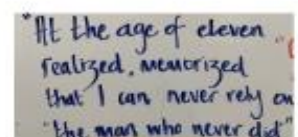 "At the age of eleven
realized, memorized
that I can never rely on
"the man who never did"